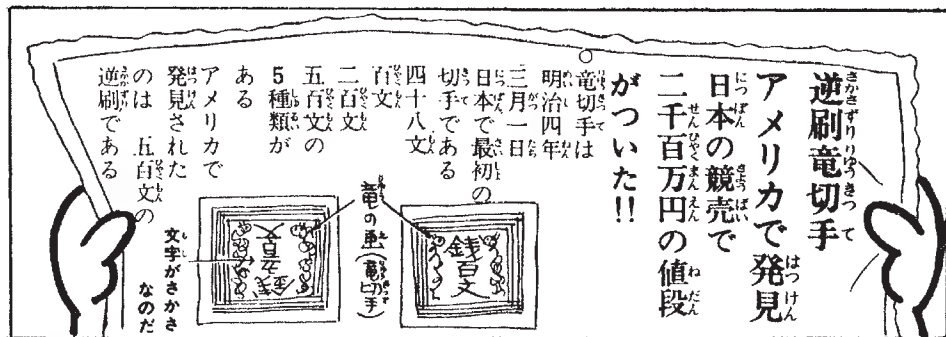 逆刷竜切手
アメリカで発見
日本の競売で
二千百万円の値段
がついた!!
○竜切手は
明治四年
三月一日
日本で最初の
切手である
四十八文
百文
二百文
五百文の
5種類が
ある
アメリカで
発見された
のは 五百文の
逆刷である
銭百文
竜の画(竜切手)
銭五百文
文字がさかさ
なのだ